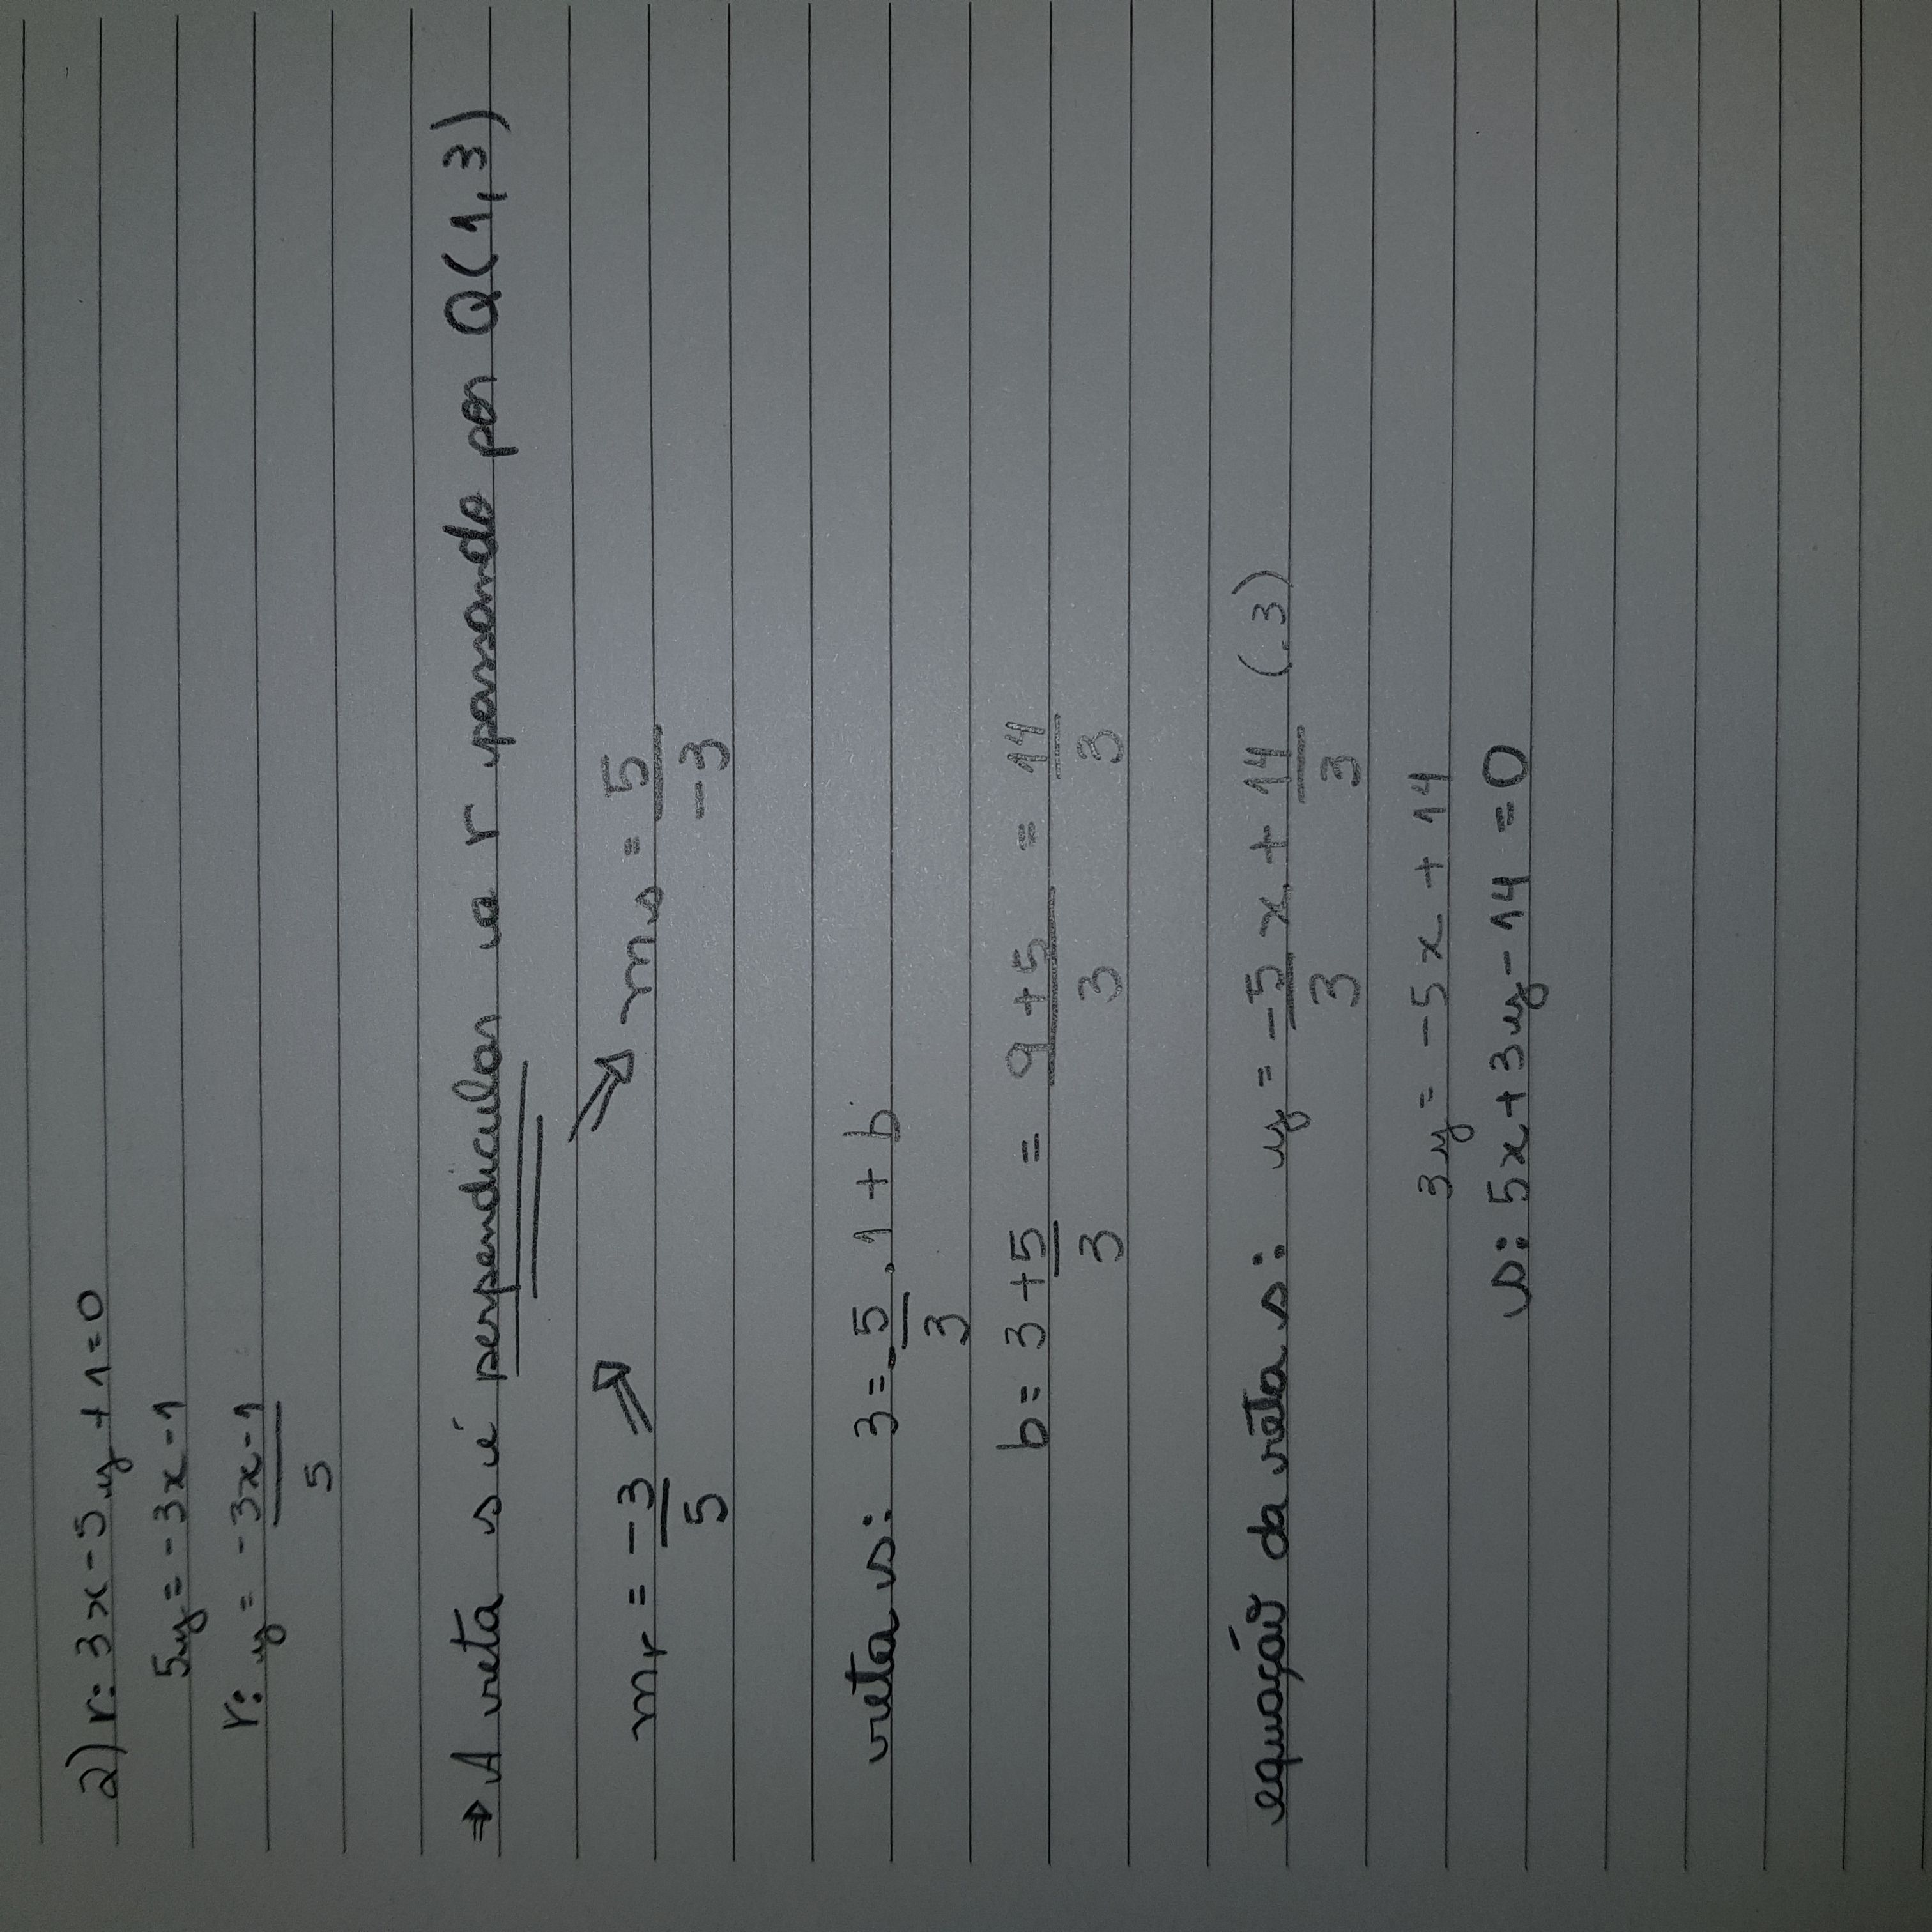 2) r: 3x - 5y + 1 = 0
5y = -3x - 1
r: y = -3x - 1 / 5
⇒ A reta s é perpendicular a r passando por Q(1, 3)
mr = -3/5 ⇒ ⇒ ms = 5/-3
reta s: 3 = -5/3 . 1 + b
b = 3 + 5/3 = 9 + 5 / 3 = 14/3
equação da reta s: y = -5/3 x + 14/3 (. 3)
3y = -5x + 14
s: 5x + 3y - 14 = 0